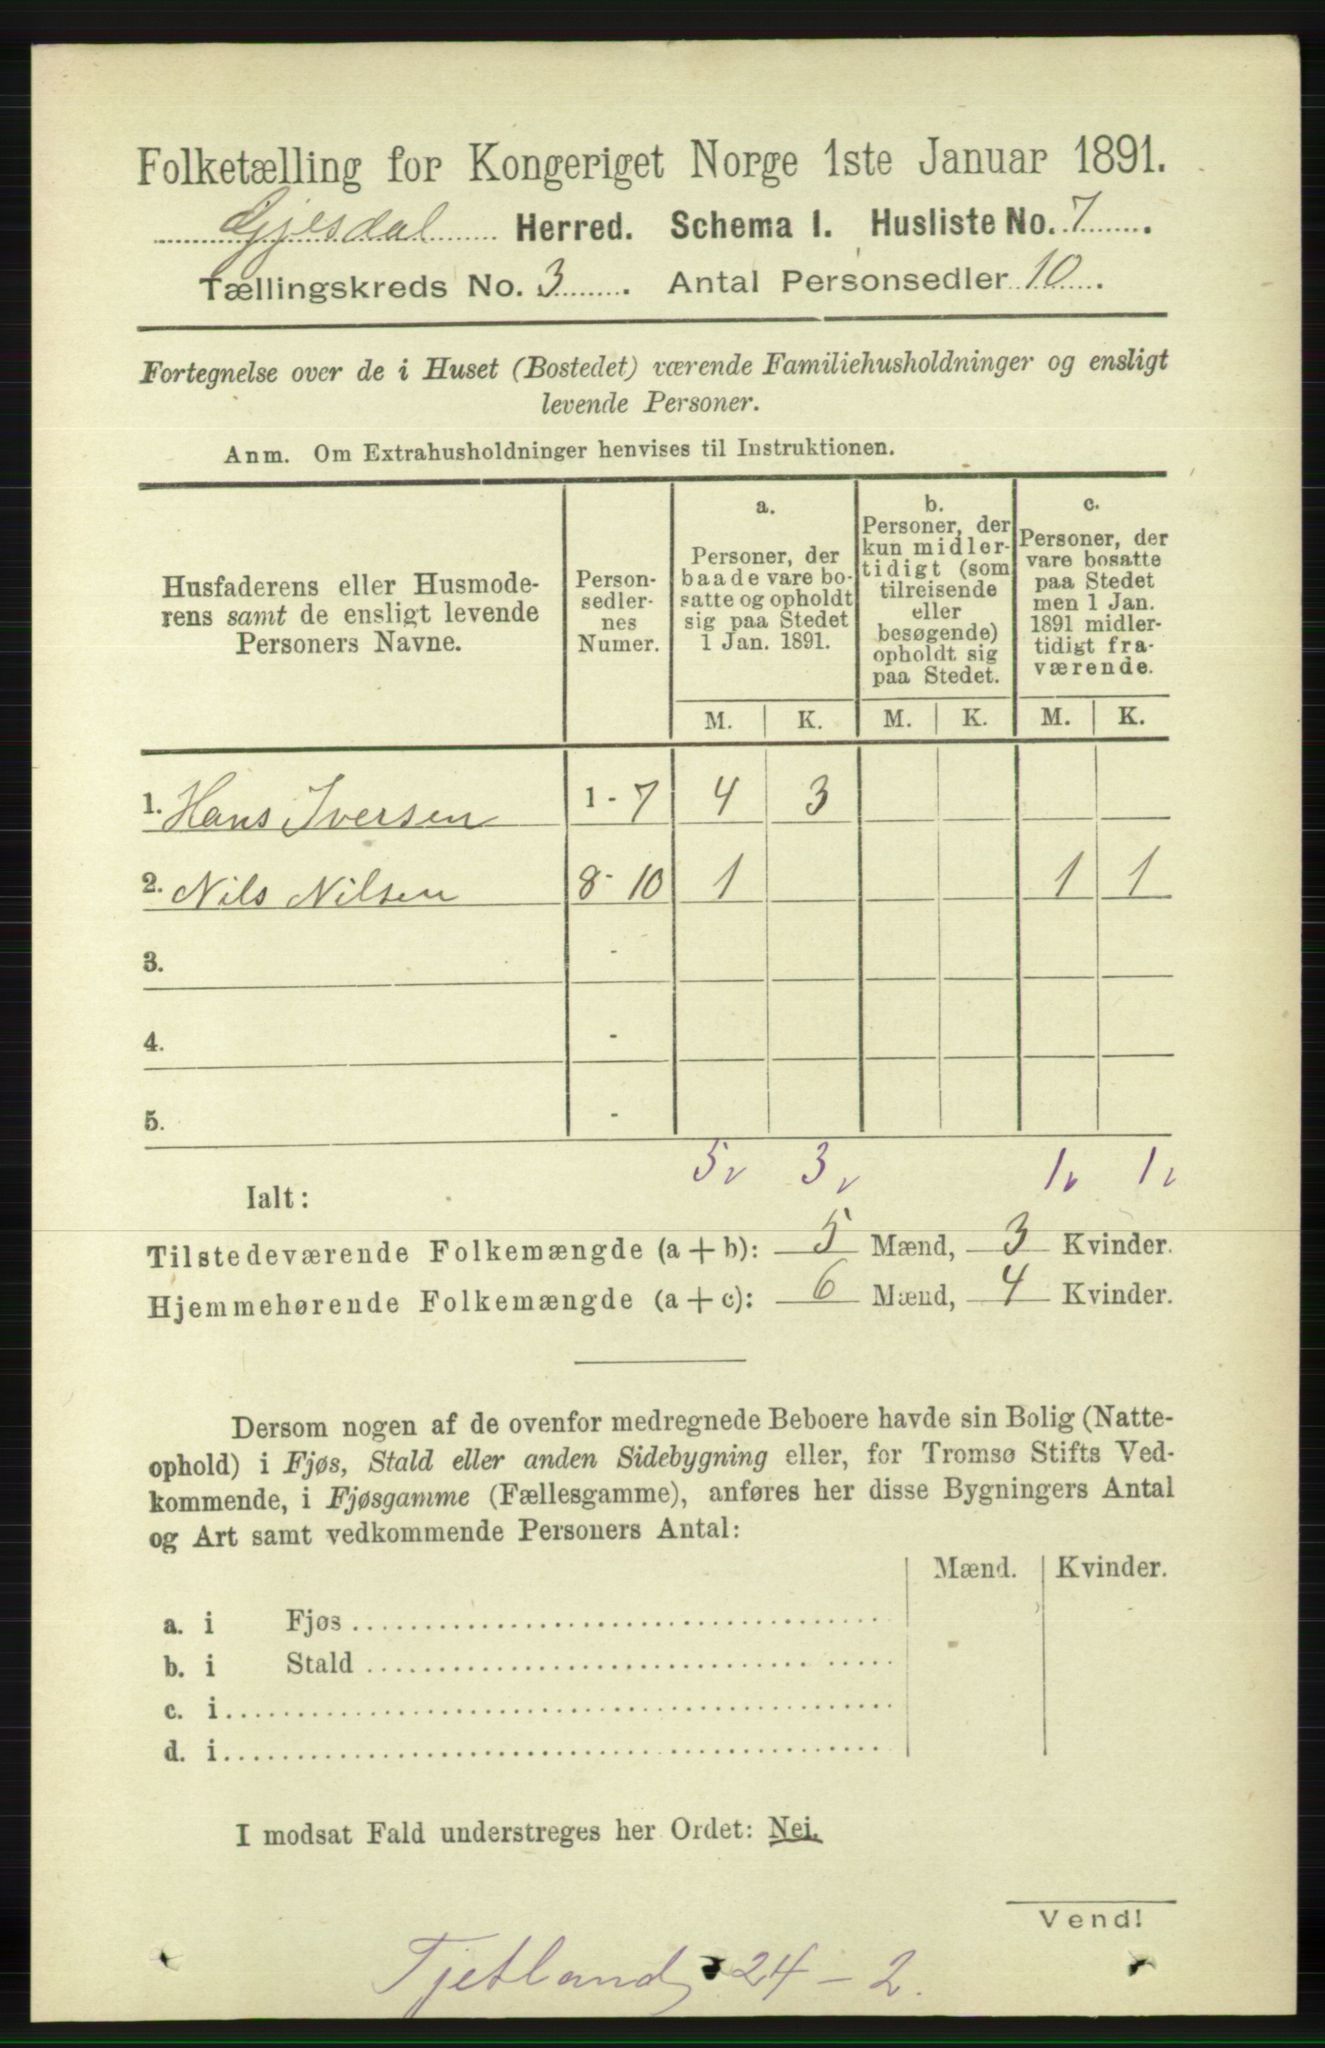 Folketælling for Kongeriget Norge 1ste Januar 1891.
Gjesdal Herred. Schema I. Husliste No. 7.
Tællingskreds No. 3. Antal Personsedler 10.
Fortegnelse over de i Huset (Bostedet) værende Familiehusholdninger og ensligt
levende Personer.
Anm. Om Extrahusholdninger henvises til Instruktionen.
Husfaderens eller Husmode-
rens samt de ensligt levende
Personers Navne.
Person-
sedler-
nes
Numer.
a.
Personer, der
baade vare bo-
satte og opholdt
sig paa Stedet
1 Jan. 1891.
b.
Personer, der
kun midler-
tidigt (som
tilreisende
eller
besøgende)
opholdt sig
paa Stedet.
c.
Personer, der
vare bosatte
paa Stedet
men 1 Jan.
1891 midler-
tidigt fra-
værende.
M. K. M. K. M. K.
1. Hans Iversen 1 - 7 4 3
2. Nils Nilsen 8 - 10 1 1 1
3. -
4. -
5. -
5v 3v 1v 1v
Ialt:
Tilstedeværende Folkemængde (a+b): 5 Mænd, 3 Kvinder.
Hjemmehørende Folkemængde (a+c): 6 Mænd, 4 Kvinder.
Dersom nogen af de ovenfor medregnede Beboere havde sin Bolig (Natte-
ophold) i Fjøs, Stald eller anden Sidebygning eller, for Tromsø Stifts Ved-
kommende, i Fjøsgamme (Fællesgamme), anføres her disse Bygningers Antal
og Art samt vedkommende Personers Antal:
Mænd. Kvinder.
a. i Fjøs
b. i Stald
c. i
d. i
I modsat Fald understreges her Ordet: Nei.
Vend!
Tjetland 24-2.